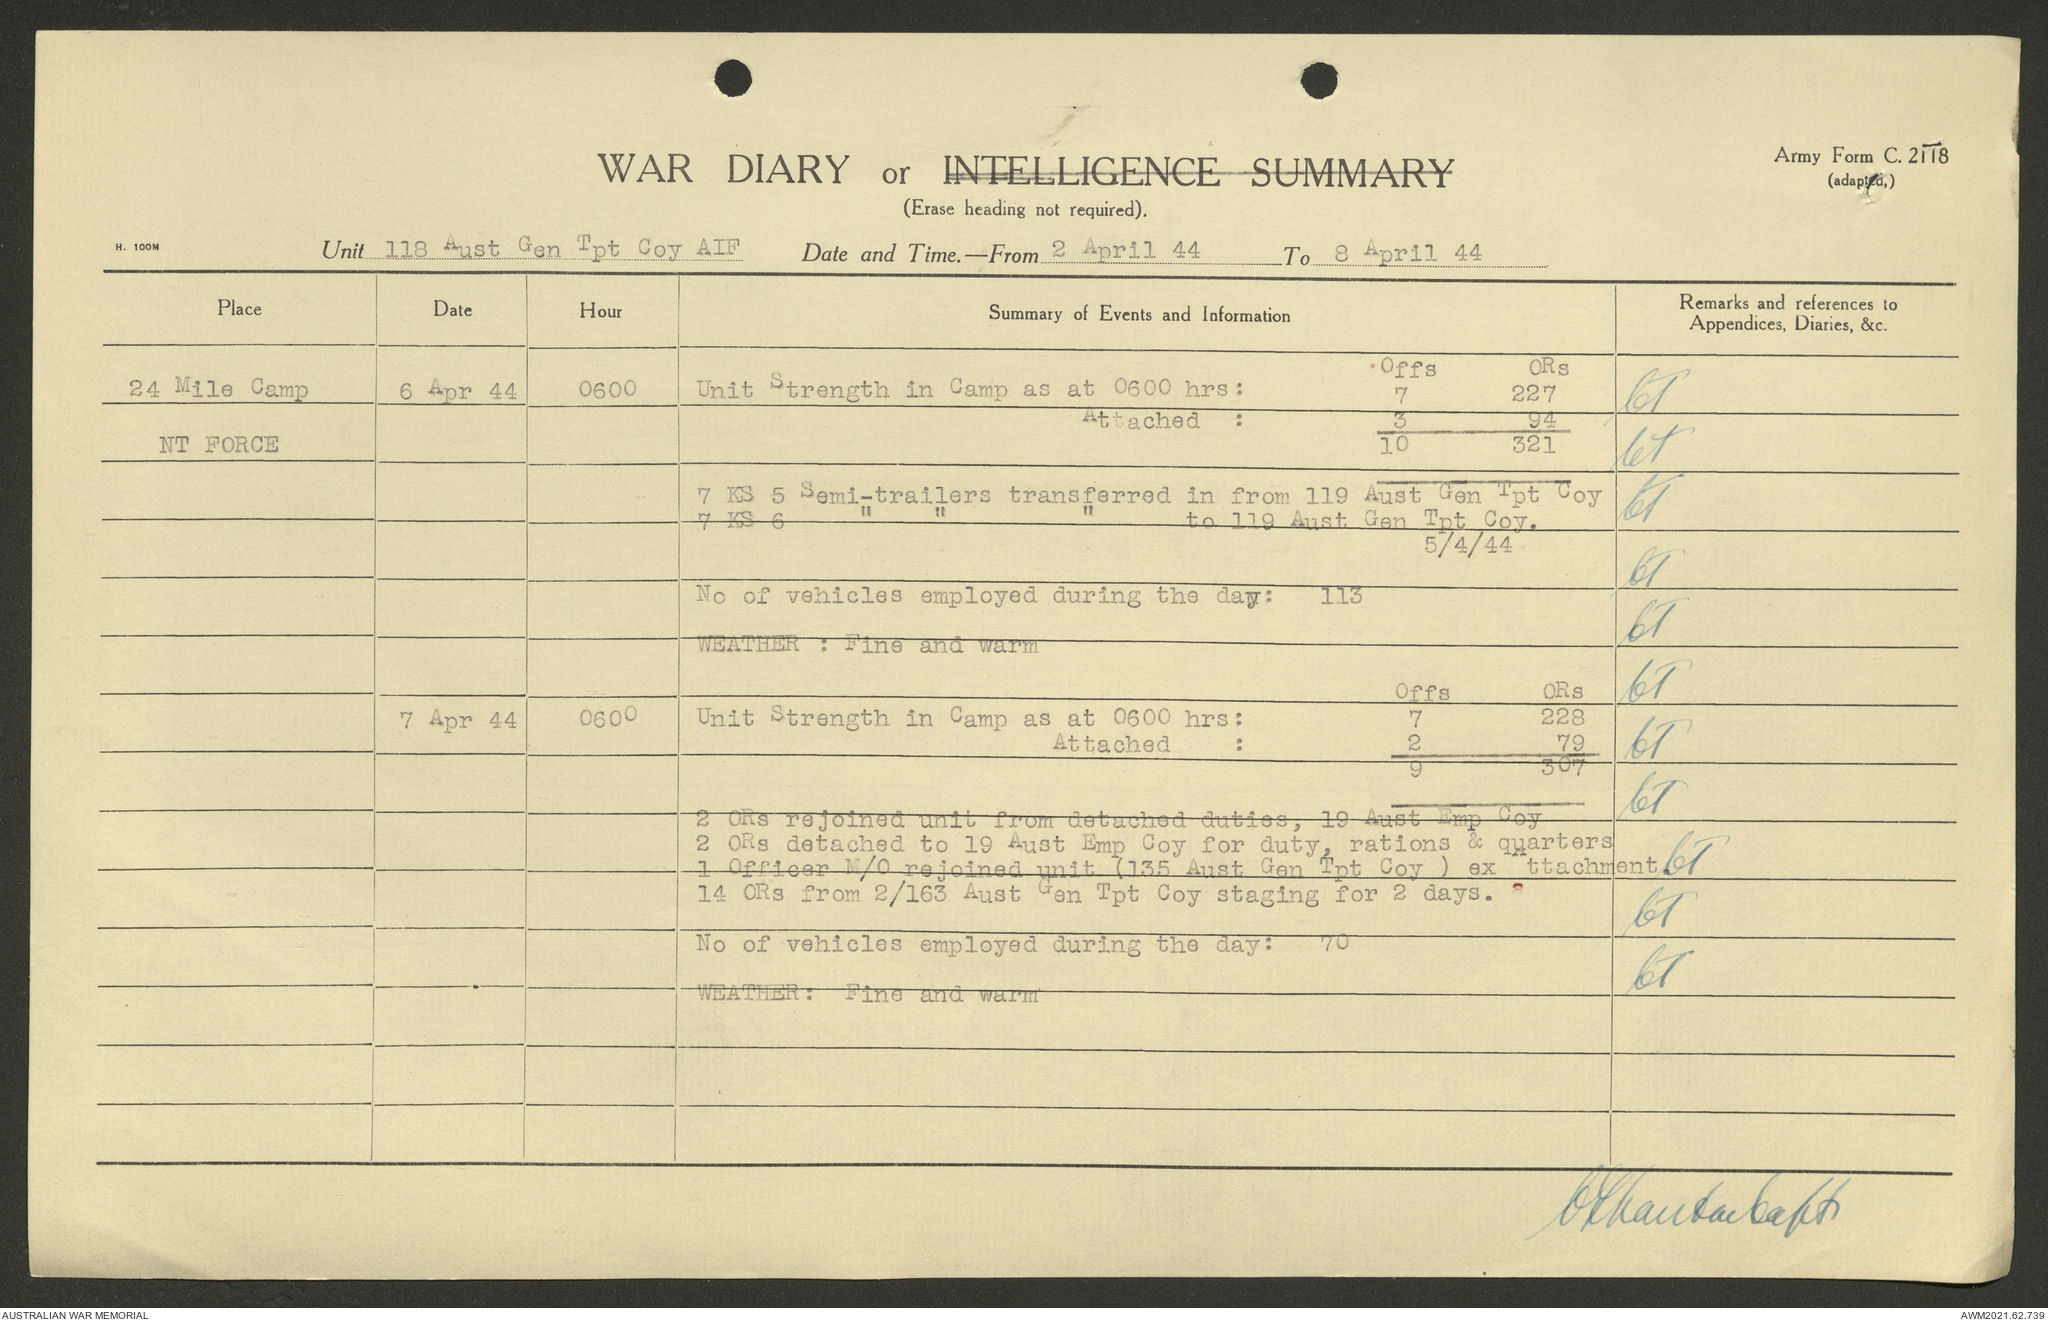 WAR DIARY or INTELLIGENCE SUMMARY
(Erase heading not required).
Army Form C. 2118
(adapted,)
H. 100M
Unit 118 Aust Gen Tpt Coy AIF Date and Time.—From 2 April 44 To 8 April 44
Place Date Hour Summary of Events and Information Remarks and references to
Appendices, Diaries, &c.
Offs ORs
24 Mile Camp 6 Apr 44 0600 Unit Strength in Camp as at 0600 hrs: 7 227
Attached : 3 94
NT FORCE 10 321
7 KS 5 Semi-trailers transferred in from 119 Aust Gen Tpt Coy
7 KS 6 " " " to 119 Aust Gen Tpt Coy.
5/4/44
No of vehicles employed during the day: 113
WEATHER : Fine and warm
Offs ORs
7 Apr 44 0600 Unit Strength in Camp as at 0600 hrs: 7 228
Attached : 2 79
9 307
2 ORs rejoined unit from detached duties, 19 Aust Emp Coy
2 ORs detached to 19 Aust Emp Coy for duty, rations & quarters
1 Officer M/O rejoined unit (135 Aust Gen Tpt Coy ) ex Attachment
14 ORs from 2/163 Aust Gen Tpt Coy staging for 2 days.
No of vehicles employed during the day: 70
WEATHER: Fine and warm
Capt
AUSTRALIAN WAR MEMORIAL
AWM2021.62.739